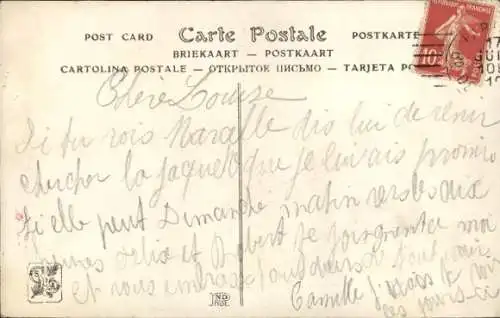 POST CARD Carte Postale POSTKARTE
BRIEKAART — POSTKAART
CARTOLINA POSTALE — ОТКРЫТОЕ ПИСЬМО — TARJETA PO
10c
17
Chère Louise
Si tu vois Marcelle dis lui de venir
chercher la jaquette que je lui ais promis
Si elle peut Dimanche matin vers les dix
heures et Robert se joigne à ma
et vous embrasse tous
Camille
ND PHOT